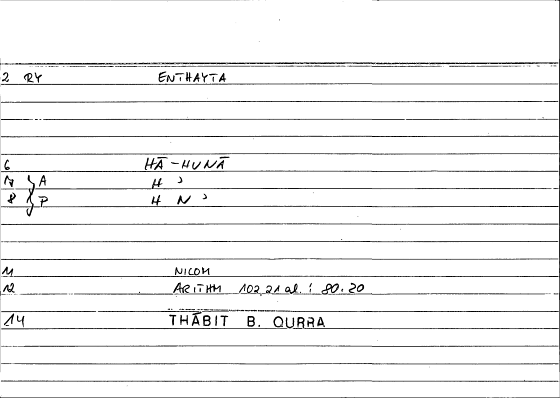 2 RY ENTHAYTA
6 HĀ-HUNĀ
7 } A H ʾ
8 } P H N ʾ
11 NICOM
12 ARITHM 102,21 al. : 80.20
14 THĀBIT B. QURRA